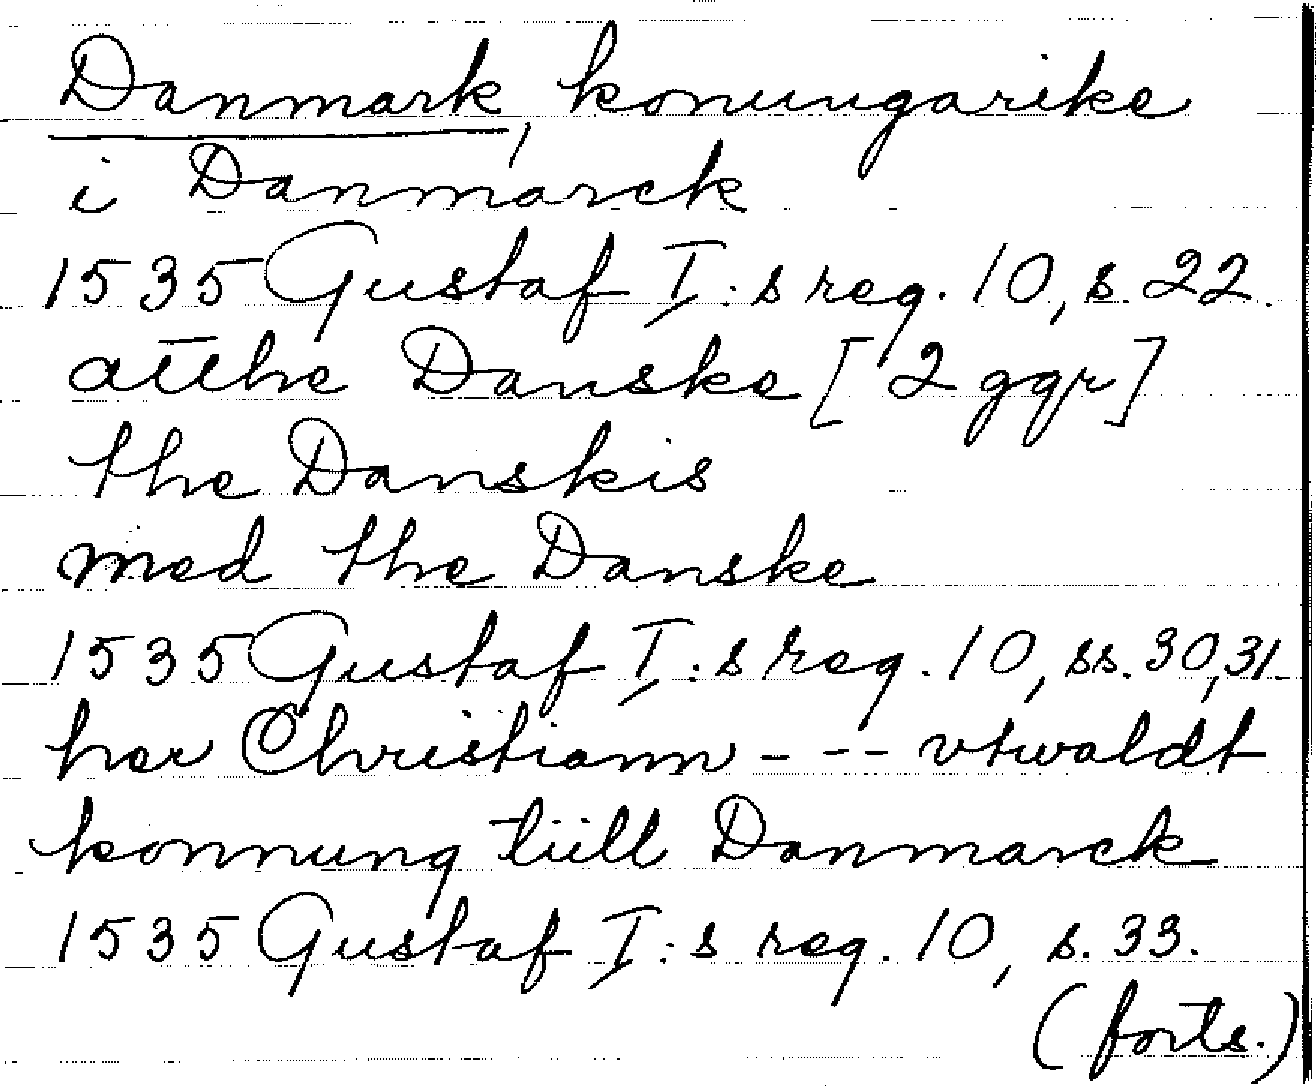 Danmark, konungarike
i Danmarck
1535 Gustaf I:s reg. 10, s. 22.
atthe Danske [2 ggr]
the Danskis
med the Danske
1535 Gustaf I:s reg. 10, ss. 30,31.
her Christiann --- vtwaldt
konnung tiill Danmarck
1535 Gustaf I:s reg. 10, s. 33.
(forts.)